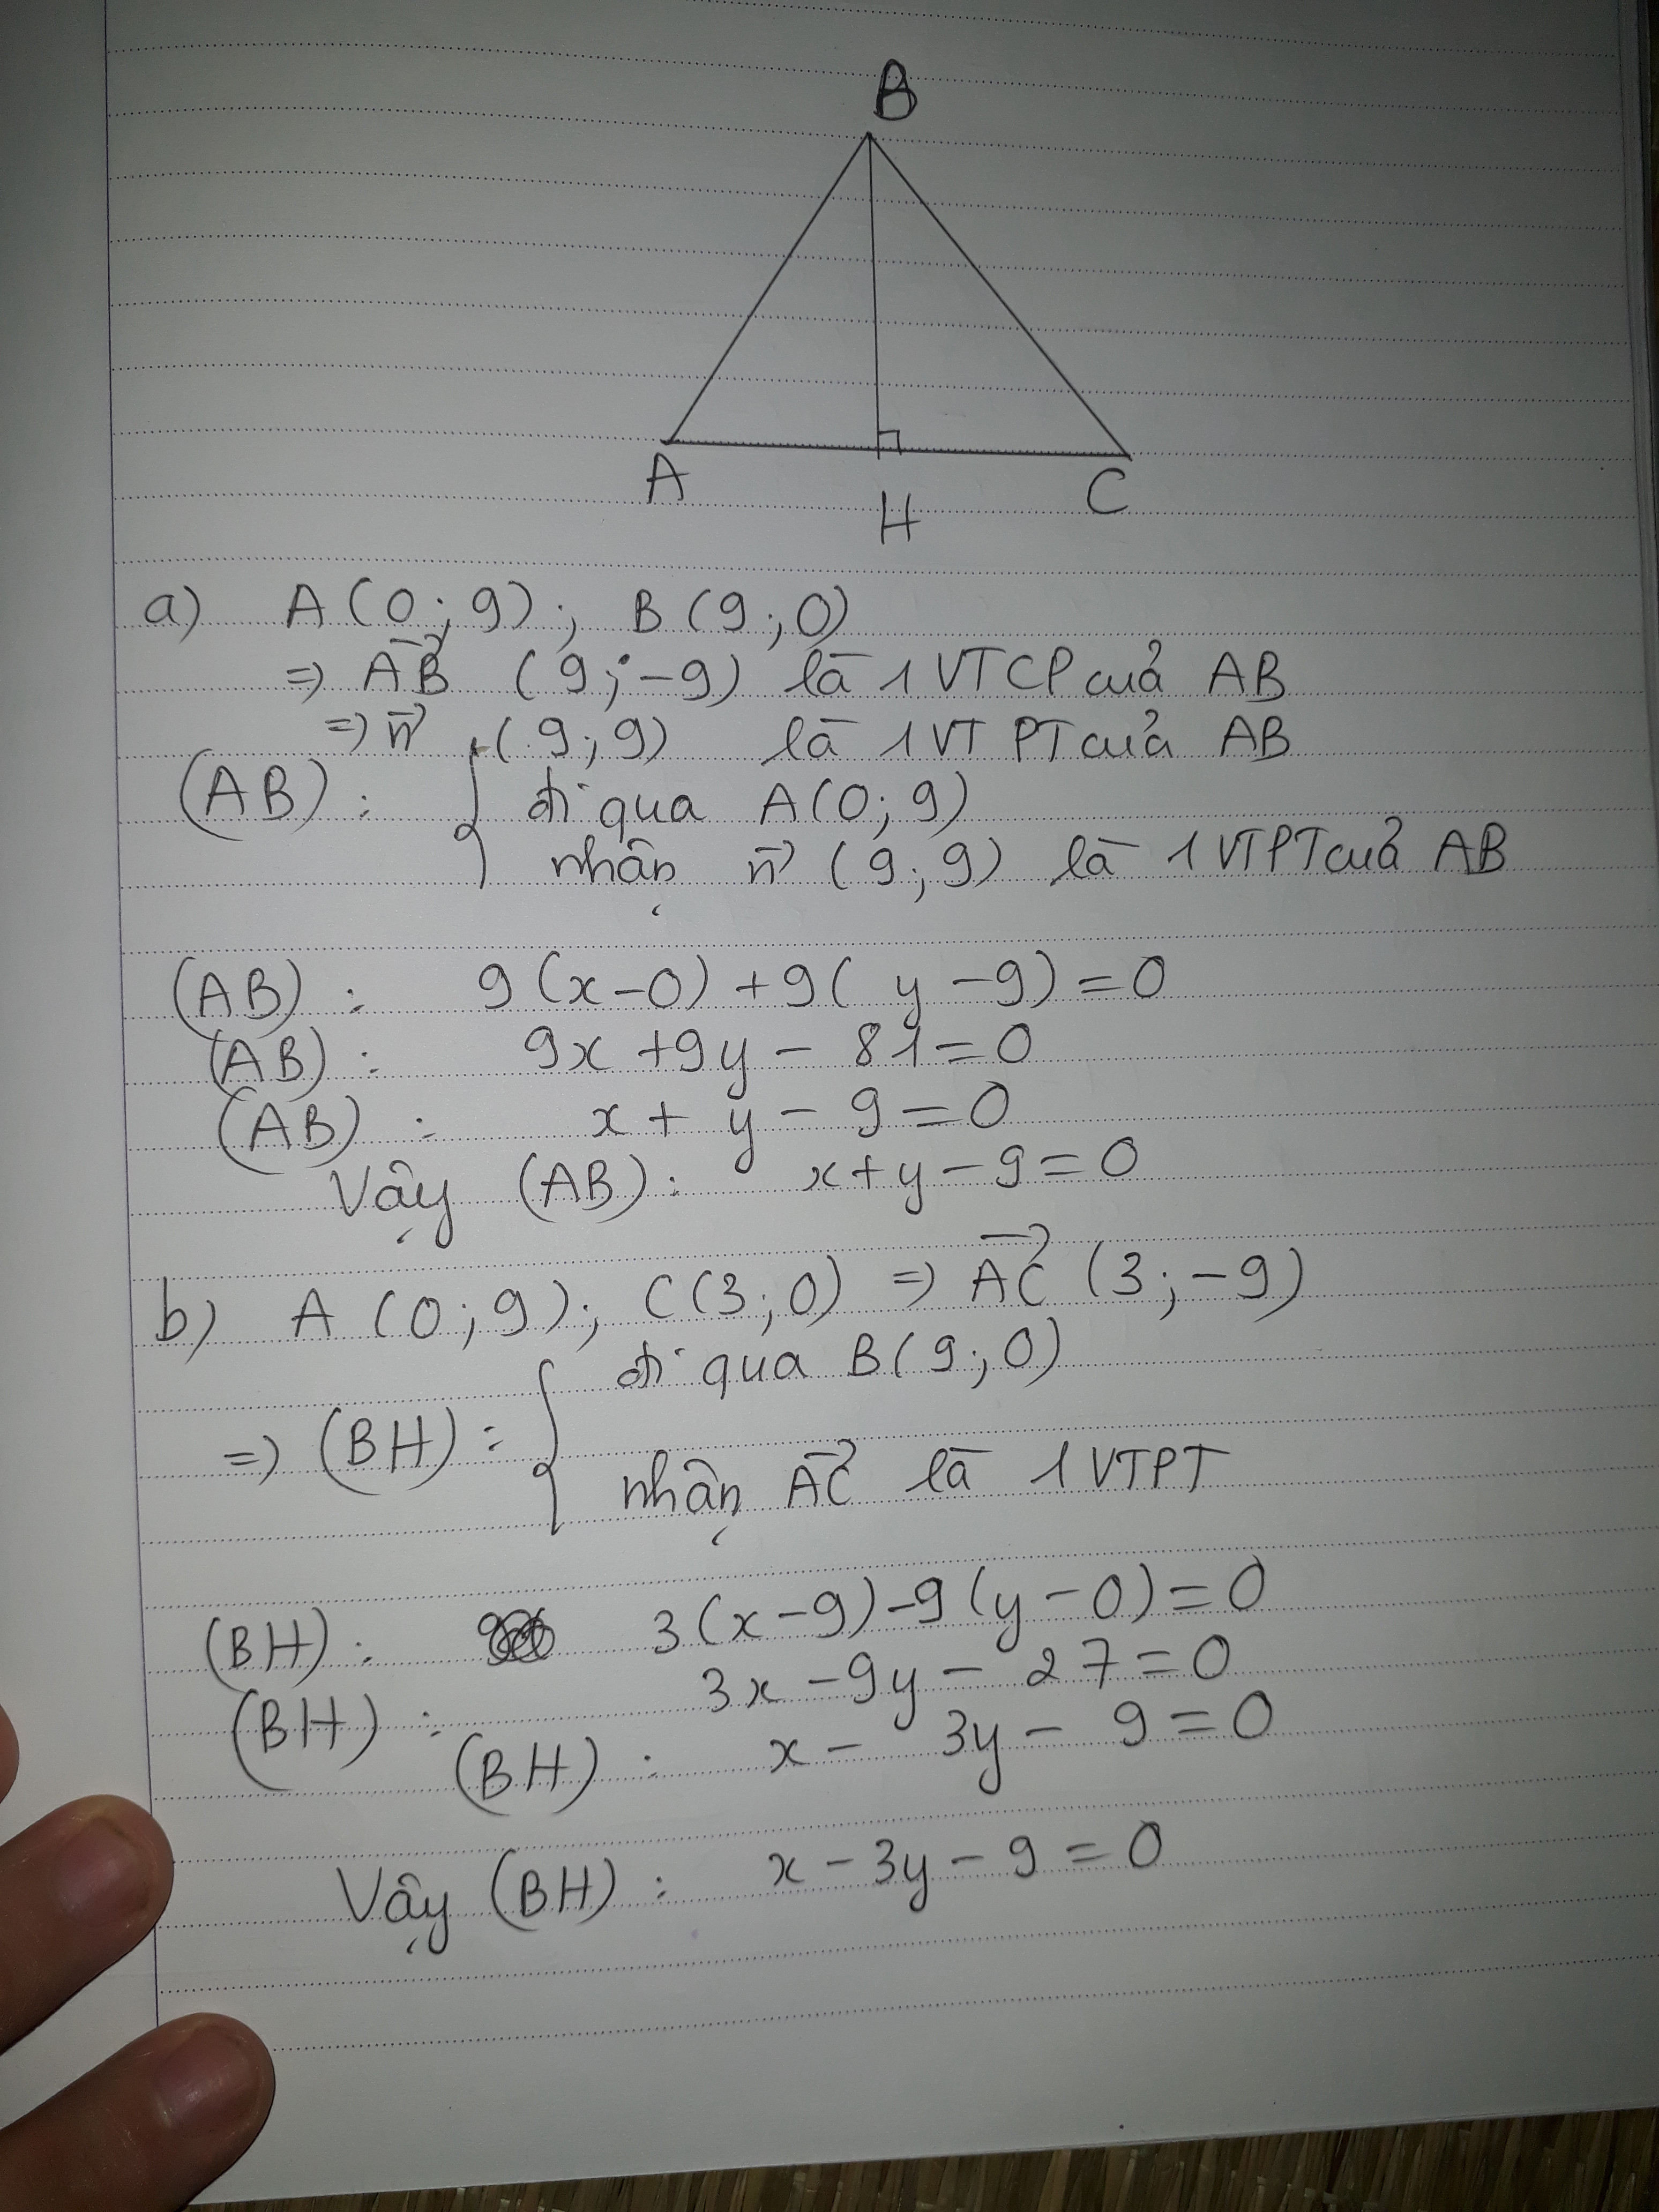 B
A
H
C
a) A(0;9); B(9;0)
=> AB→ (9;-9) là 1 VTCP của AB
=> n→ (9;9) là 1 VTPT của AB
(AB): { đi qua A(0;9)
nhận n→ (9;9) là 1 VTPT của AB
(AB): 9(x-0)+9(y-9)=0
(AB): 9x+9y-81=0
(AB): x+y-9=0
Vậy (AB): x+y-9=0
b) A(0;9); C(3;0) => AC→ (3;-9)
=> (BH): { đi qua B(9;0)
nhận AC→ là 1 VTPT
(BH): 3(x-9)-9(y-0)=0
(BH): 3x-9y-27=0
(BH): x-3y-9=0
Vậy (BH): x-3y-9=0